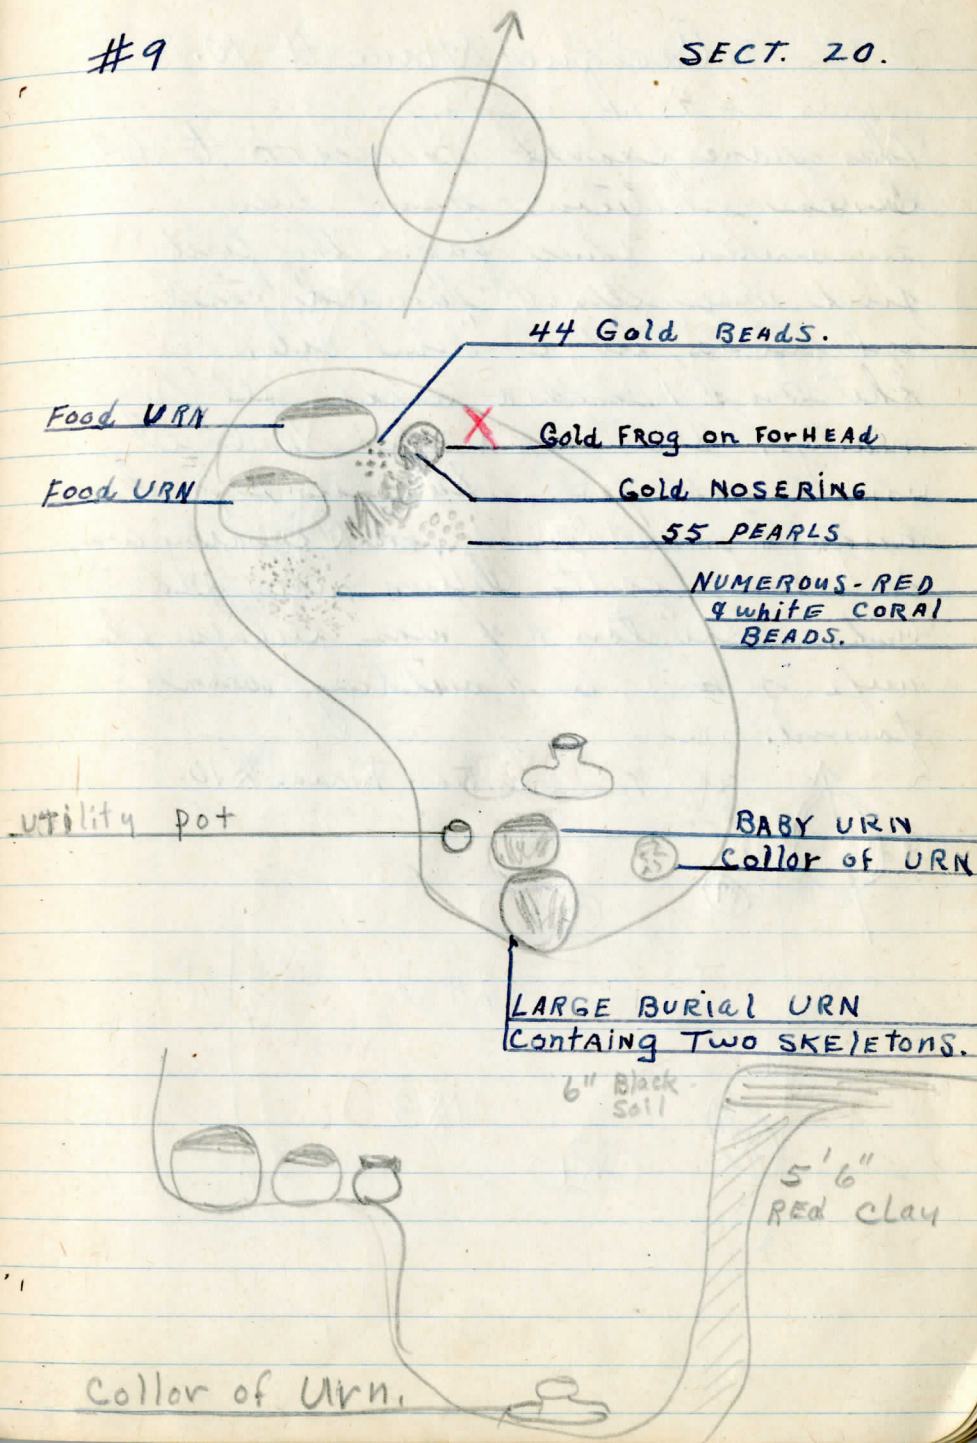 #9 SECT. 20.
44 Gold BEAdS.
Food URN
Gold FROg on ForHEAd
Food URN
Gold NOSERING
55 PEARLS
NUMEROUS-RED
& whitE CORAl
BEADS.
utility pot
BABY URN
Collor of URN
LARGE BURial URN
ContAINg Two SKElEtonS.
6" Black
Soil
5'6"
REd Clay
Collor of Urn.